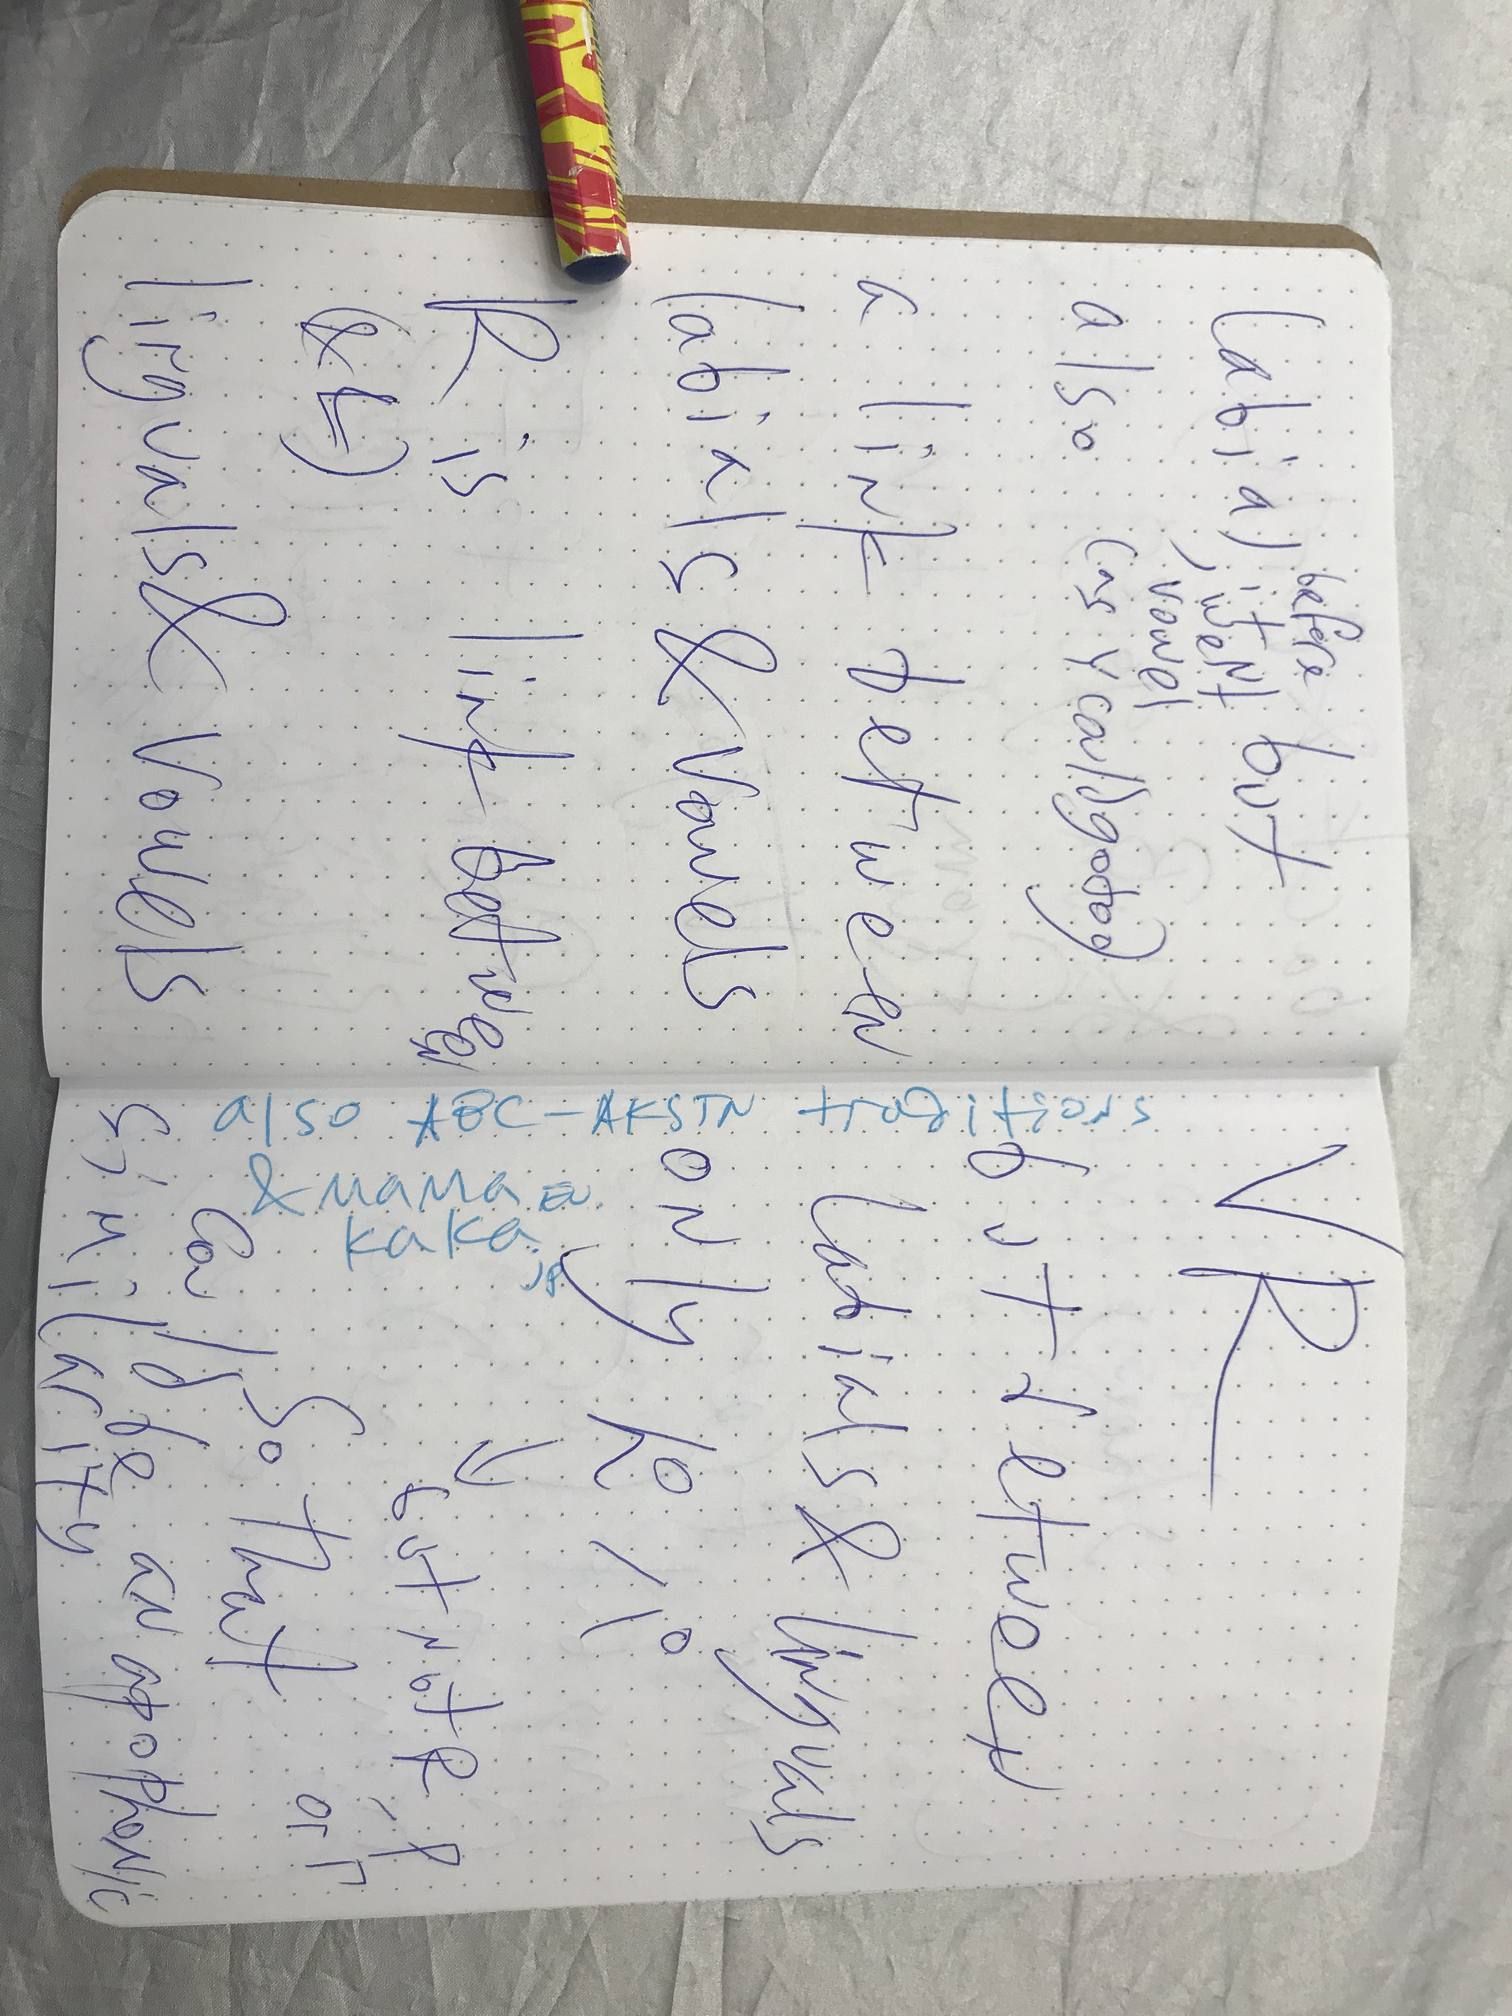 labial, before it went but
, vowel
also (as Y could go too)
a link between
labials & vowels
R is link between
(& L)
linguals & vowels
VR
but between
labials & linguals
only K° / 1°
↓ but not R, P
or Γ
So that
could be an apophonic
similarity
also ABC-AKSTN traditions
& mama =
kaka.